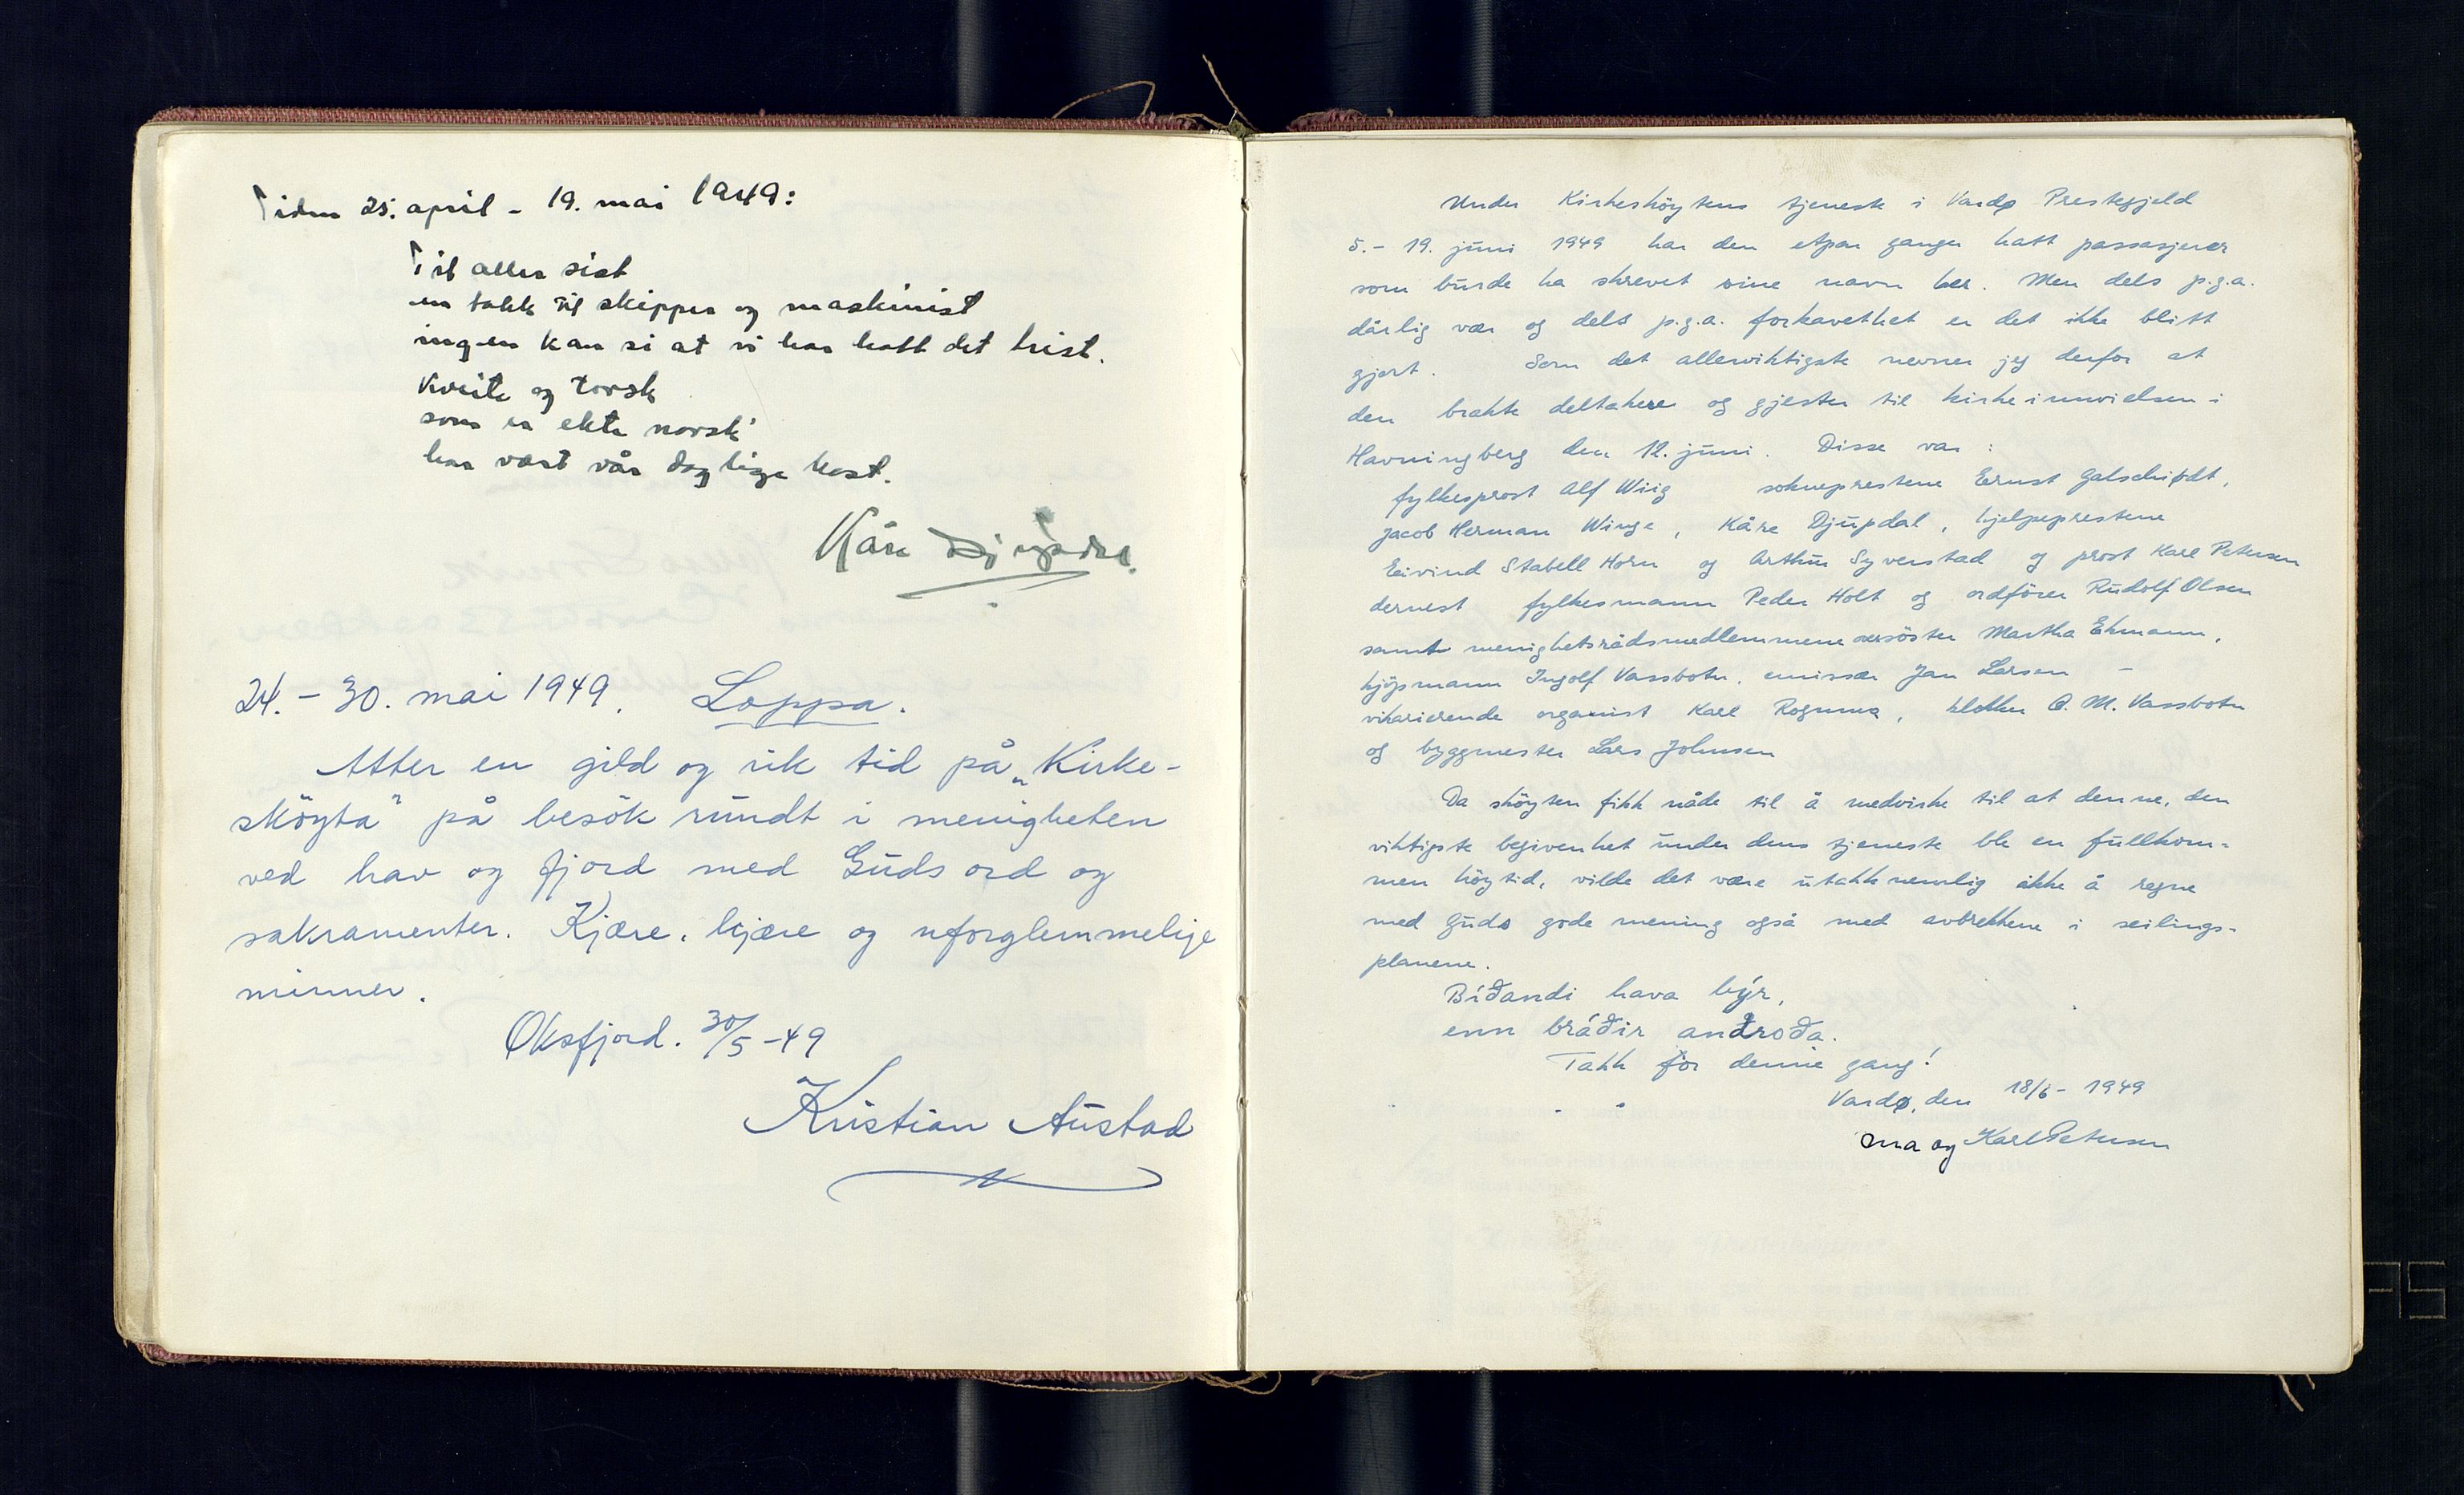 Tiden 25. april - 19. mai 1949:
Til aller sist
en takk til skipper og maskinist
ingen kan si at vi har hatt det trist.
Kveite og torsk
som er ekte norsk
har vært vår daglige kost.
Kåre Djupdal.
24. - 30. mai 1949. Loppa.
Atter en gild og rik tid på „Kirke-
sköyta" på besök rundt i menigheten
ved hav og fjord med Guds ord og
sakramenter. Kjære, kjære og uforglemmelige
minner.
Øksfjord. 30/5 -49
Kristian Austad
Under Kirkesköytens tjeneste i Vardø Prestegjeld
5. - 19. juni 1949 har den etpar ganger hatt passasjerer
som burde ha skrevet sine navn her. Men dels p.g.a.
dårlig vær og dels p.g.a. forkavethet er det ikke blitt
gjort. Som det allerviktigste nevner jeg derfor at
den brakte deltakere og gjester til kirkeinnvielsen i
Havningberg den 12. juni. Disse var :
fylkesprost Alf Wiig sokneprestene Ernst Galschiødt,
Jacob Herman Winge, Kåre Djupdal, hjelpeprestene
Eivind Stabell Horn og Arthur Syverstad og prost Karl Petersen
dernest fylkesmann Peder Holt og ordförer Rudolf Olsen
samt menighetsrådsmedlemmene Martha Ehmann,
kjøpmann Ingolf Vassbotn, emissær Jan Larsen -
vikarierende organist Karl klokker O. M. Vassbotn
og byggmester Lars Johnsen
Da sköyten fikk nåde til å medvirke til at denne, den
viktigste begivenhet under dens tjeneste ble en fullkom-
men höytid, vilde det være utakknemlig ikke å regne
med Guds gode mening også med avbrekkene i seilings-
planene.
Bíðandi hava býr,
enn bráðir andróða.
Takk for denne gang!
Vardø, den 18/6 - 1949
og Karl Petersen